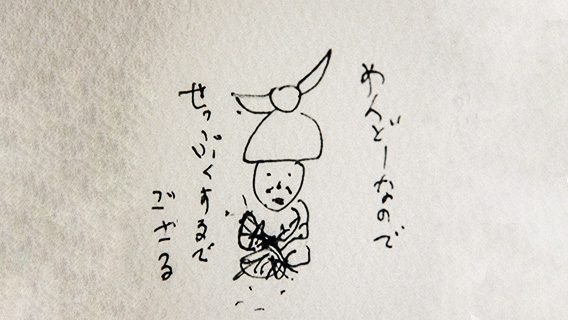 めんどーなので
せっぷくするで
ござる